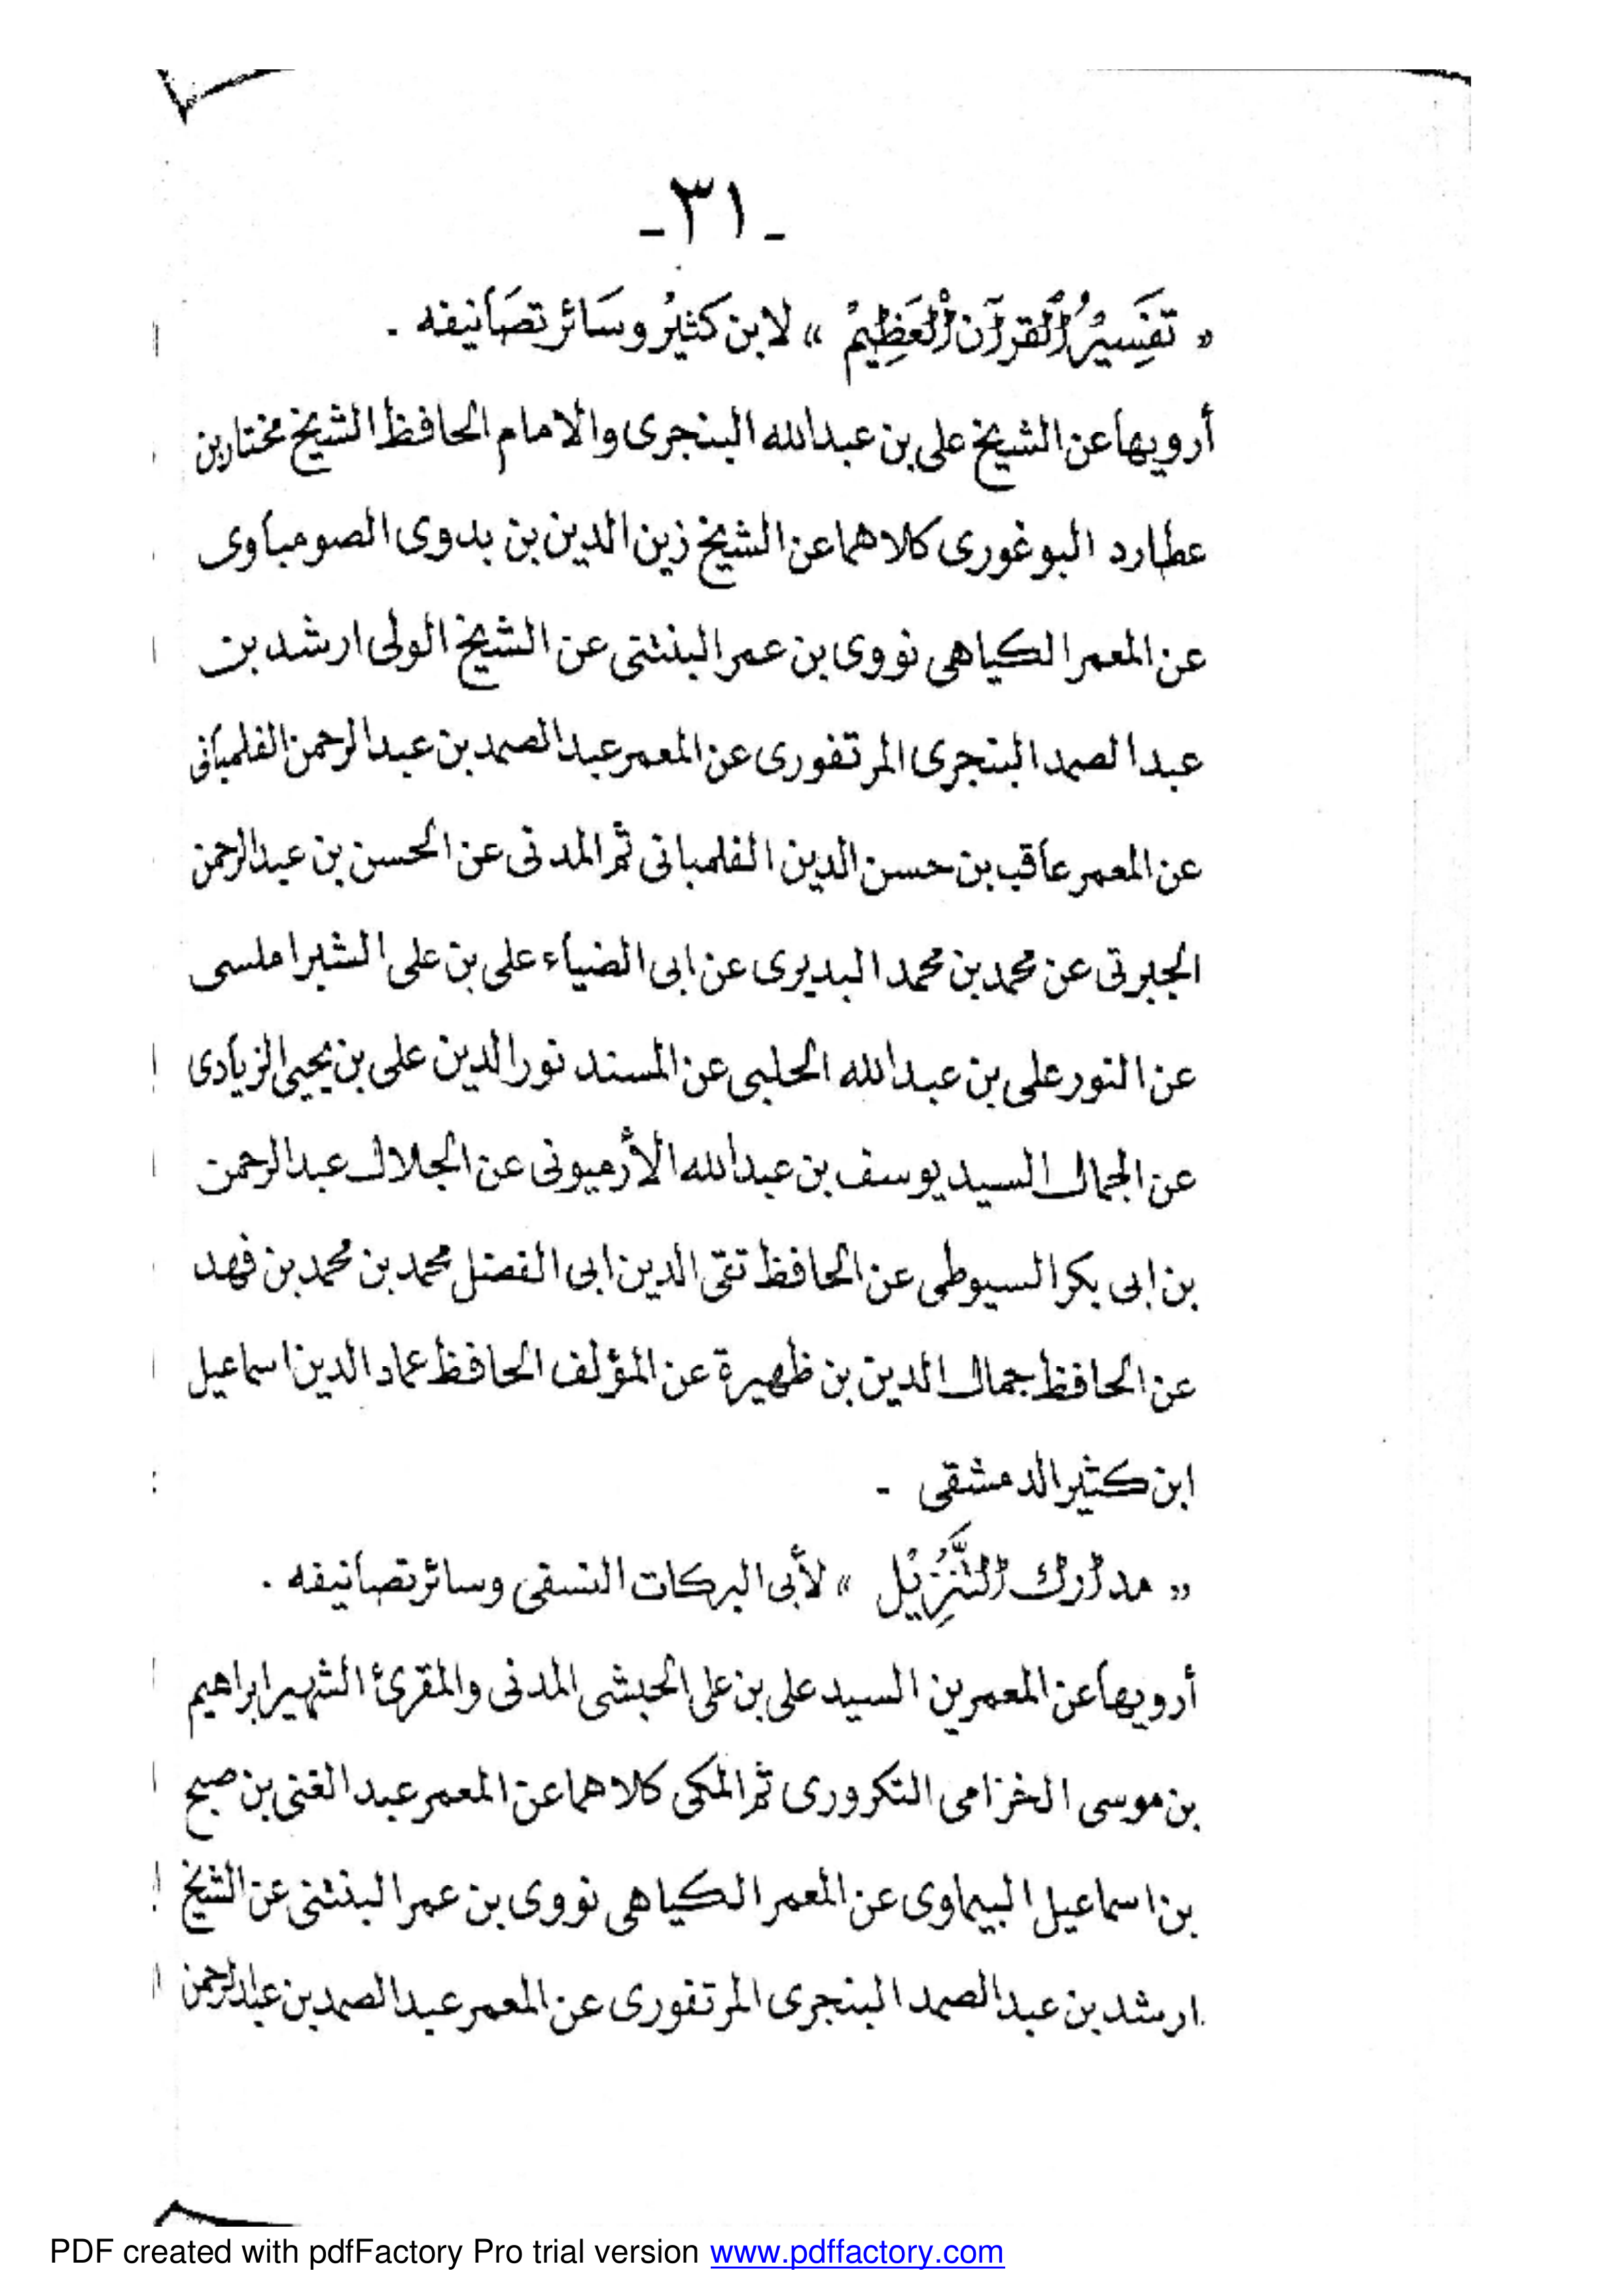 - ٣١ -
« تَفسِيرُ القرآن العَظِيمُ » لابن كثيرُ وسَائر تصَانيفه .
أرويها عن الشيخ على بن عبدالله البنجرى والامام الحافظ الشيخ مختار بن
عطارد البوغورى كلاهما عن الشيخ زين الدين بن بدوى الصومباوى
عن المعمر الكياهى نووى بن عمر البنتنى عن الشيخ الولى ارشد بن
عبد الصمد البنجرى المرتفورى عن المعمر عبد الصمد بن عبد الرحمن الفلمبانى
عن المعمر عاقب بن حسن الدين الفلمبانى ثم المدنى عن الحسن بن عبد الرحمن
الجبرتى عن محمد بن محمد البديرى عن ابى الضياء على بن على الشبراملسى
عن النور على بن عبدالله الحلبى عن المسند نور الدين على بن يحيى الزيادى
عن الجمال السيد يوسف بن عبدالله الأرميونى عن الجلال عبد الرحمن
بن ابى بكر السيوطى عن الحافظ تقى الدين ابى الفضل محمد بن محمد بن فهد
عن الحافظ جمال الدين بن ظهيرة عن المؤلف الحافظ عماد الدين اسماعيل
ابن كثير الدمشقى -
« مدارك التَّنزِيْل » لأبى البركات النسفى وسائر تصانيفه .
أرويها عن المعمرين السيد على بن على الحبشى المدنى والمقرئ الشهير ابراهيم
بن موسى الخزامى التكرورى ثم المكى كلاهما عن المعمر عبد الغنى بن صبح
بن اسماعيل البيماوى عن المعمر الكياهى نووى بن عمر البنتنى عن الشيخ
ارشد بن عبد الصمد البنجرى المرتفورى عن المعمر عبد الصمد بن عبد الرحمن
PDF created with pdfFactory Pro trial version www.pdffactory.com